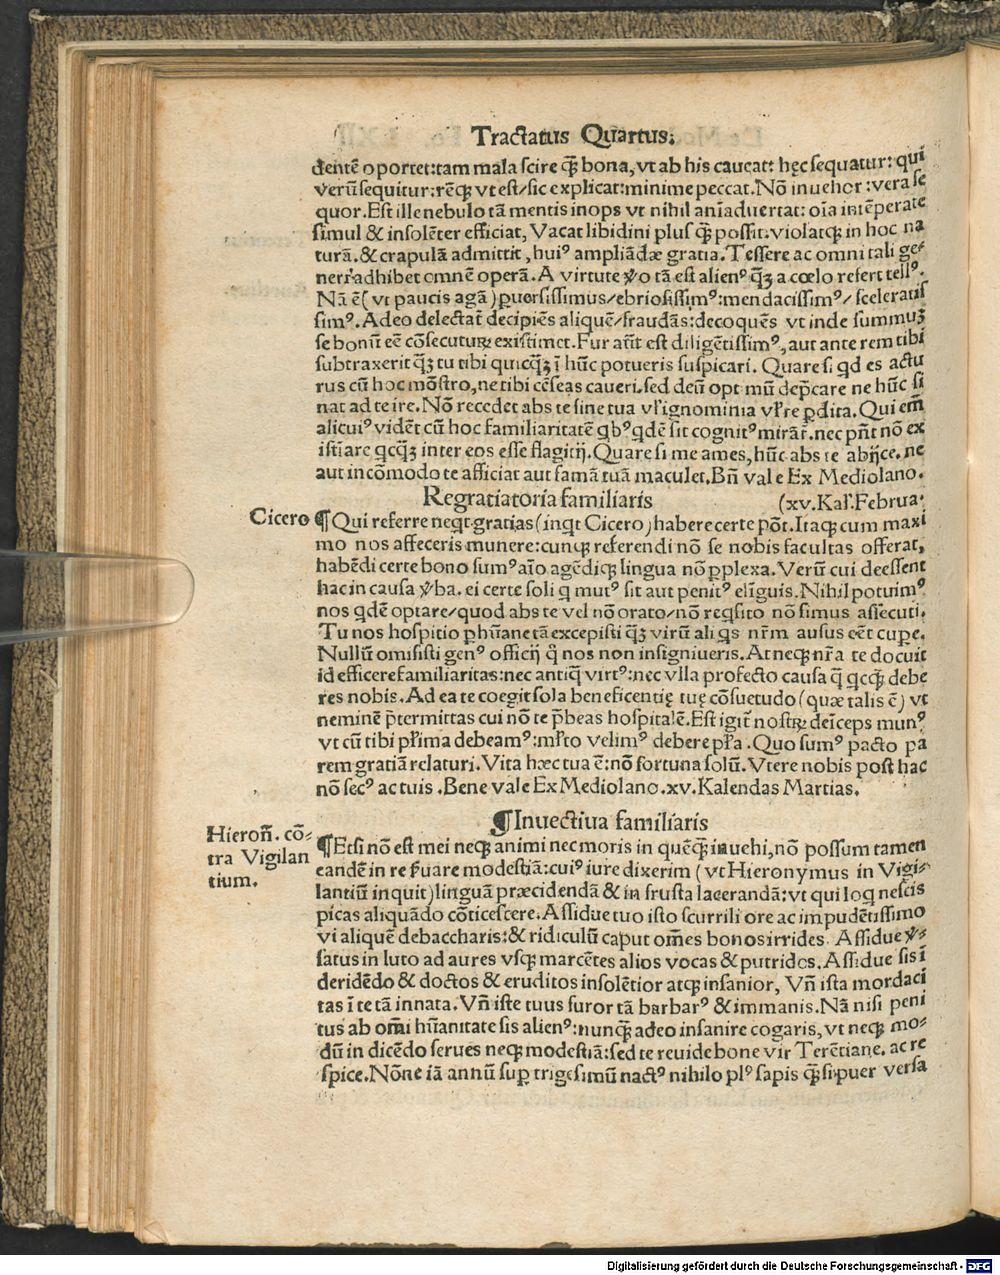 Tractatus Quartus.
dentē oportet: tam mala scire q̄ꝫ bona, vt ab his caueat: hęc sequatur: qui
verū sequitur: rēqꝫ vt est/sic explicat: minime peccat. Nō inuehor: vera se
quor. Est ille nebulo tā mentis inops vt nihil aniaduertat: oīa intēperate
simul & insolēter efficiat, Vacat libidini plus q̄ꝫ possit. violatqꝫ in hoc na
turā. & crapulā admittit, huiꝰ ampliādæ gratia. Tessere ac omni tali ge⸗
neri adhibet omnē operā. A virtute ꝟo tā est alienꝰ q̄ꝫ a cœlo refert tellꝰ.
Nā ē (vt paucis agā) ꝑuersissimus/ebriosissimꝰ: mendacissimꝰ/ sceleratis
simꝰ. Adeo delectat̄ decipiēs aliquē/fraudās: decoquēs vt inde summuꝫ
se bonū eē cōsecuturꝫ existimet. Fur aūt est diligētissimꝰ, aut ante rem tibi
subtraxerit q̄ꝫ tu tibi quicq̄ꝫ ī hūc potueris suspicari. Quare si qd es actu
rus cū hoc mōstro, ne tibi cēseas caueri. sed deū opt mū dep̄care ne hūc si
nat ad te ire. Nō recedet abs te sine tua vl' ignominia vl' re ꝑdita. Qui em̄
alicuiꝰ vidēt cū hoc familiaritatē qbꝰ qdē sit cognitꝰ mirāt̄. nec pn̄t nō ex
istīare qcq̄ꝫ inter eos esse flagitij. Quare si me ames, hūc abs te abijce. ne
aut incōmodo te afficiat aut famā tuā maculet. Bn̄ vale Ex Mediolano.
Regratiatoria familiaris (xv. Kal'. Februa.
Cicero ¶ Qui referre neqt gratias (inqt Cicero) habere certe pōt. Itaqꝫ cum maxi
mo nos affeceris munere: cunqꝫ referendi nō se nobis facultas offerat,
habēdi certe bono sumꝰ aīo agēdiqꝫ lingua nō ꝑplexa. Verū cui deessent
hac in causa ꝟba. ei certe soli q mutꝰ sit aut penitꝰ elīguis. Nihil potuimꝰ
nos qdē optare/quod abs te vel nō orato/nō reqsito nō simus assecuti.
Tu nos hospitio ꝑhūane tā excepisti q̄ꝫ virū ali qs nr̄m ausus eēt cuꝑe.
Nullū omisisti genꝰ officij q̄ nos non insigniueris. At neqꝫ nr̄a te docuit
id efficere familiaritas: nec antiqꝫ virtꝰ: nec vlla profecto causa q̄ qcq̄ꝫ debe
res nobis. Ad ea te coegit sola beneficentię tuę cōsuetudo (quæ talis ē) vt
neminē p̄termittas cui nō te p̄beas hospitalē. Est igit̄ nostrꝫ deīceps munꝰ
vt cū tibi pl'ima debeamꝰ: ml'to velimꝰ debere pl'a. Quo sumꝰ pacto pa
rem gratiā relaturi. Vita hæc tua ē: nō fortuna solū. Vtere nobis post hac
nō secꝰ ac tuis. Bene vale Ex Mediolano. xv. Kalendas Martias.
¶ Inuectiua familiaris
Hieron̄. cō⸗
tra Vigilan
tium.
¶ Etsi nō est mei neqꝫ animi nec moris in quēq̄ꝫ inuehi, nō possum tamen
eandē in re ẜuare modestiā: cuiꝰ iure dixerim (vt Hieronymus in Vigi⸗
lantiū inquit) linguā præcidendā & in frusta lacerandā: vt qui loq nescis
picas aliquādo cōticescere. Assidue tuo isto scurrili ore ac impudētissimo
vi aliquē debaccharis: & ridiculū caput om̄es bonos irrides. Assidue ꝟ⸗
satus in luto ad aures vsqꝫ marcētes alios vocas & putridos. Assidue sis ī
deridēdo & doctos & eruditos insolētior atqꝫ insanior, Vn̄ ista mordaci
tas ī te tā innata. Vn̄ iste tuus furor tā barbarꝰ & immanis. Nā nisi peni
tus ab om̄i hūanitate sis alienꝰ: nunq̄ꝫ adeo insanire cogaris, vt neqꝫ mo⸗
dū in dicēdo serues neqꝫ modestiā: sed te reuide bone vir Terētiane. ac re
spice. Nōne iā annū suꝑ trigesimū nactꝰ nihilo plꝰ sapis q̄ꝫ si puer versa
Digitalisierung gefördert durch die Deutsche Forschungsgemeinschaft - DFG